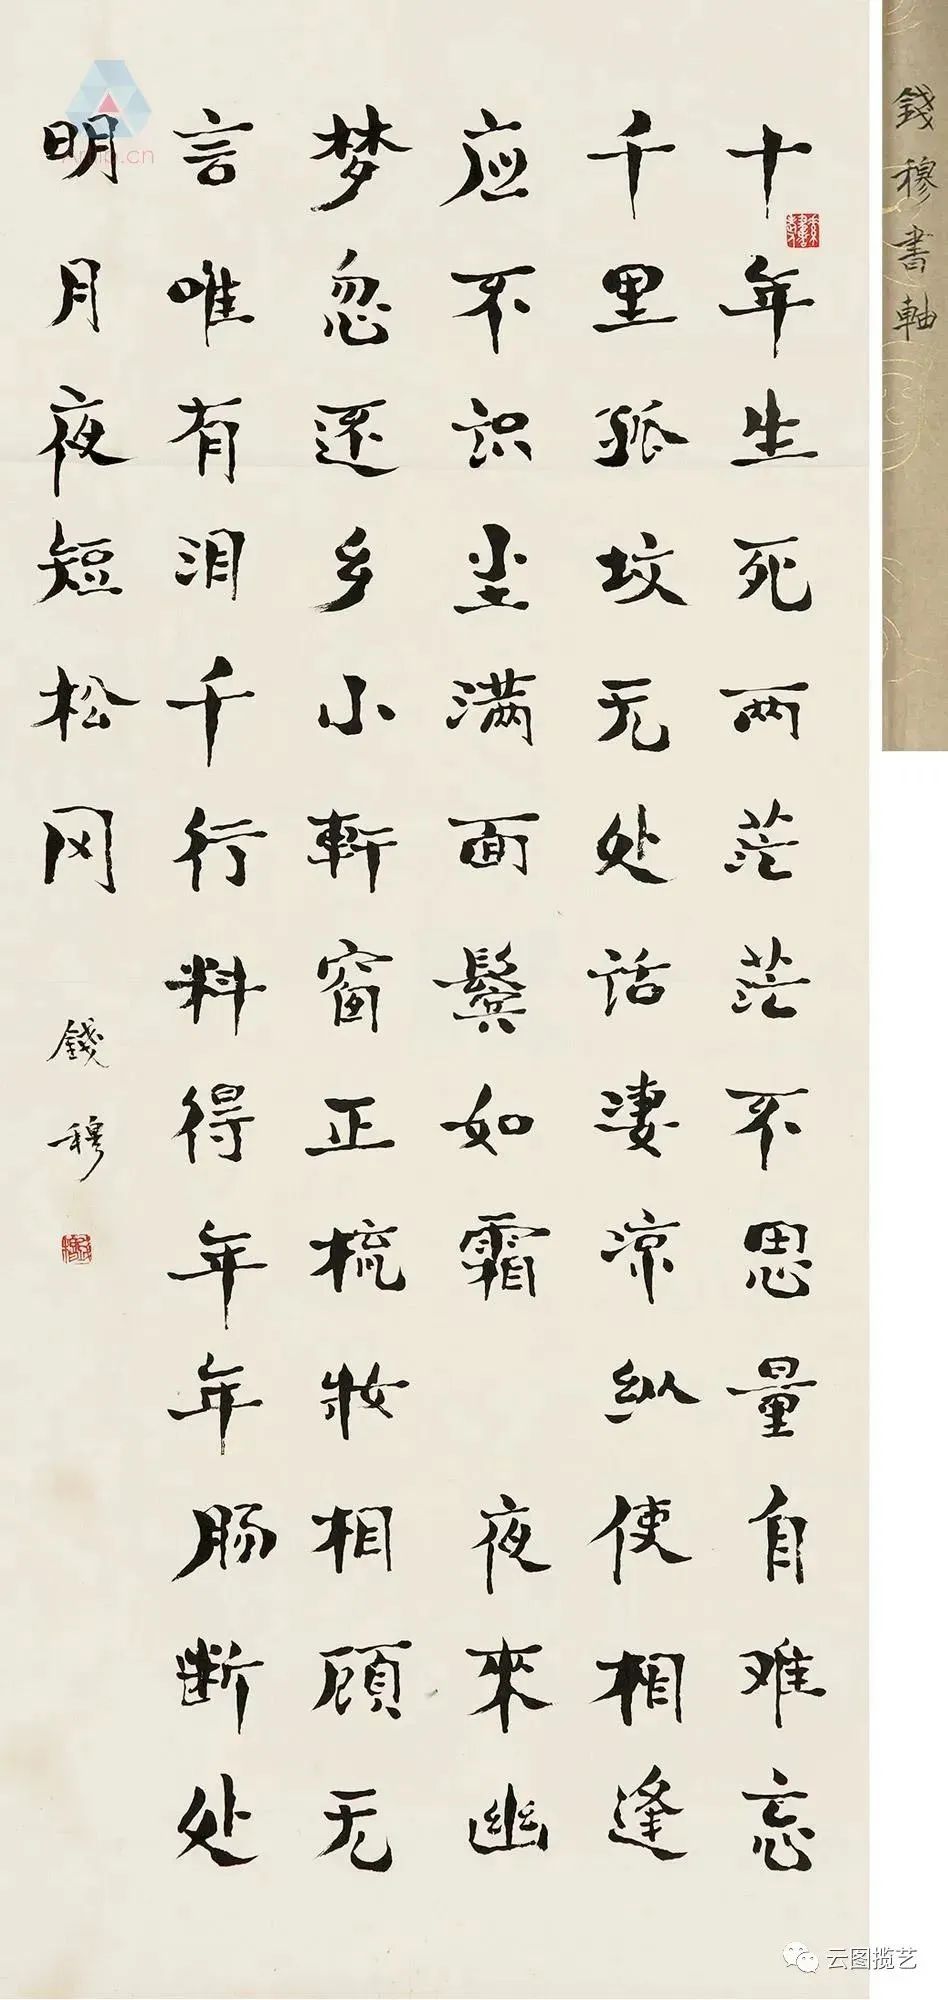 錢穆書軸
十年生死两茫茫不思量自难忘
千里孤坟无处话凄凉纵使相逢
应不识尘满面鬓如霜 夜來幽
梦忽还乡小軒窗正梳妝相顾无
言唯有泪千行料得年年肠断处
明月夜短松冈
錢穆
云图揽艺